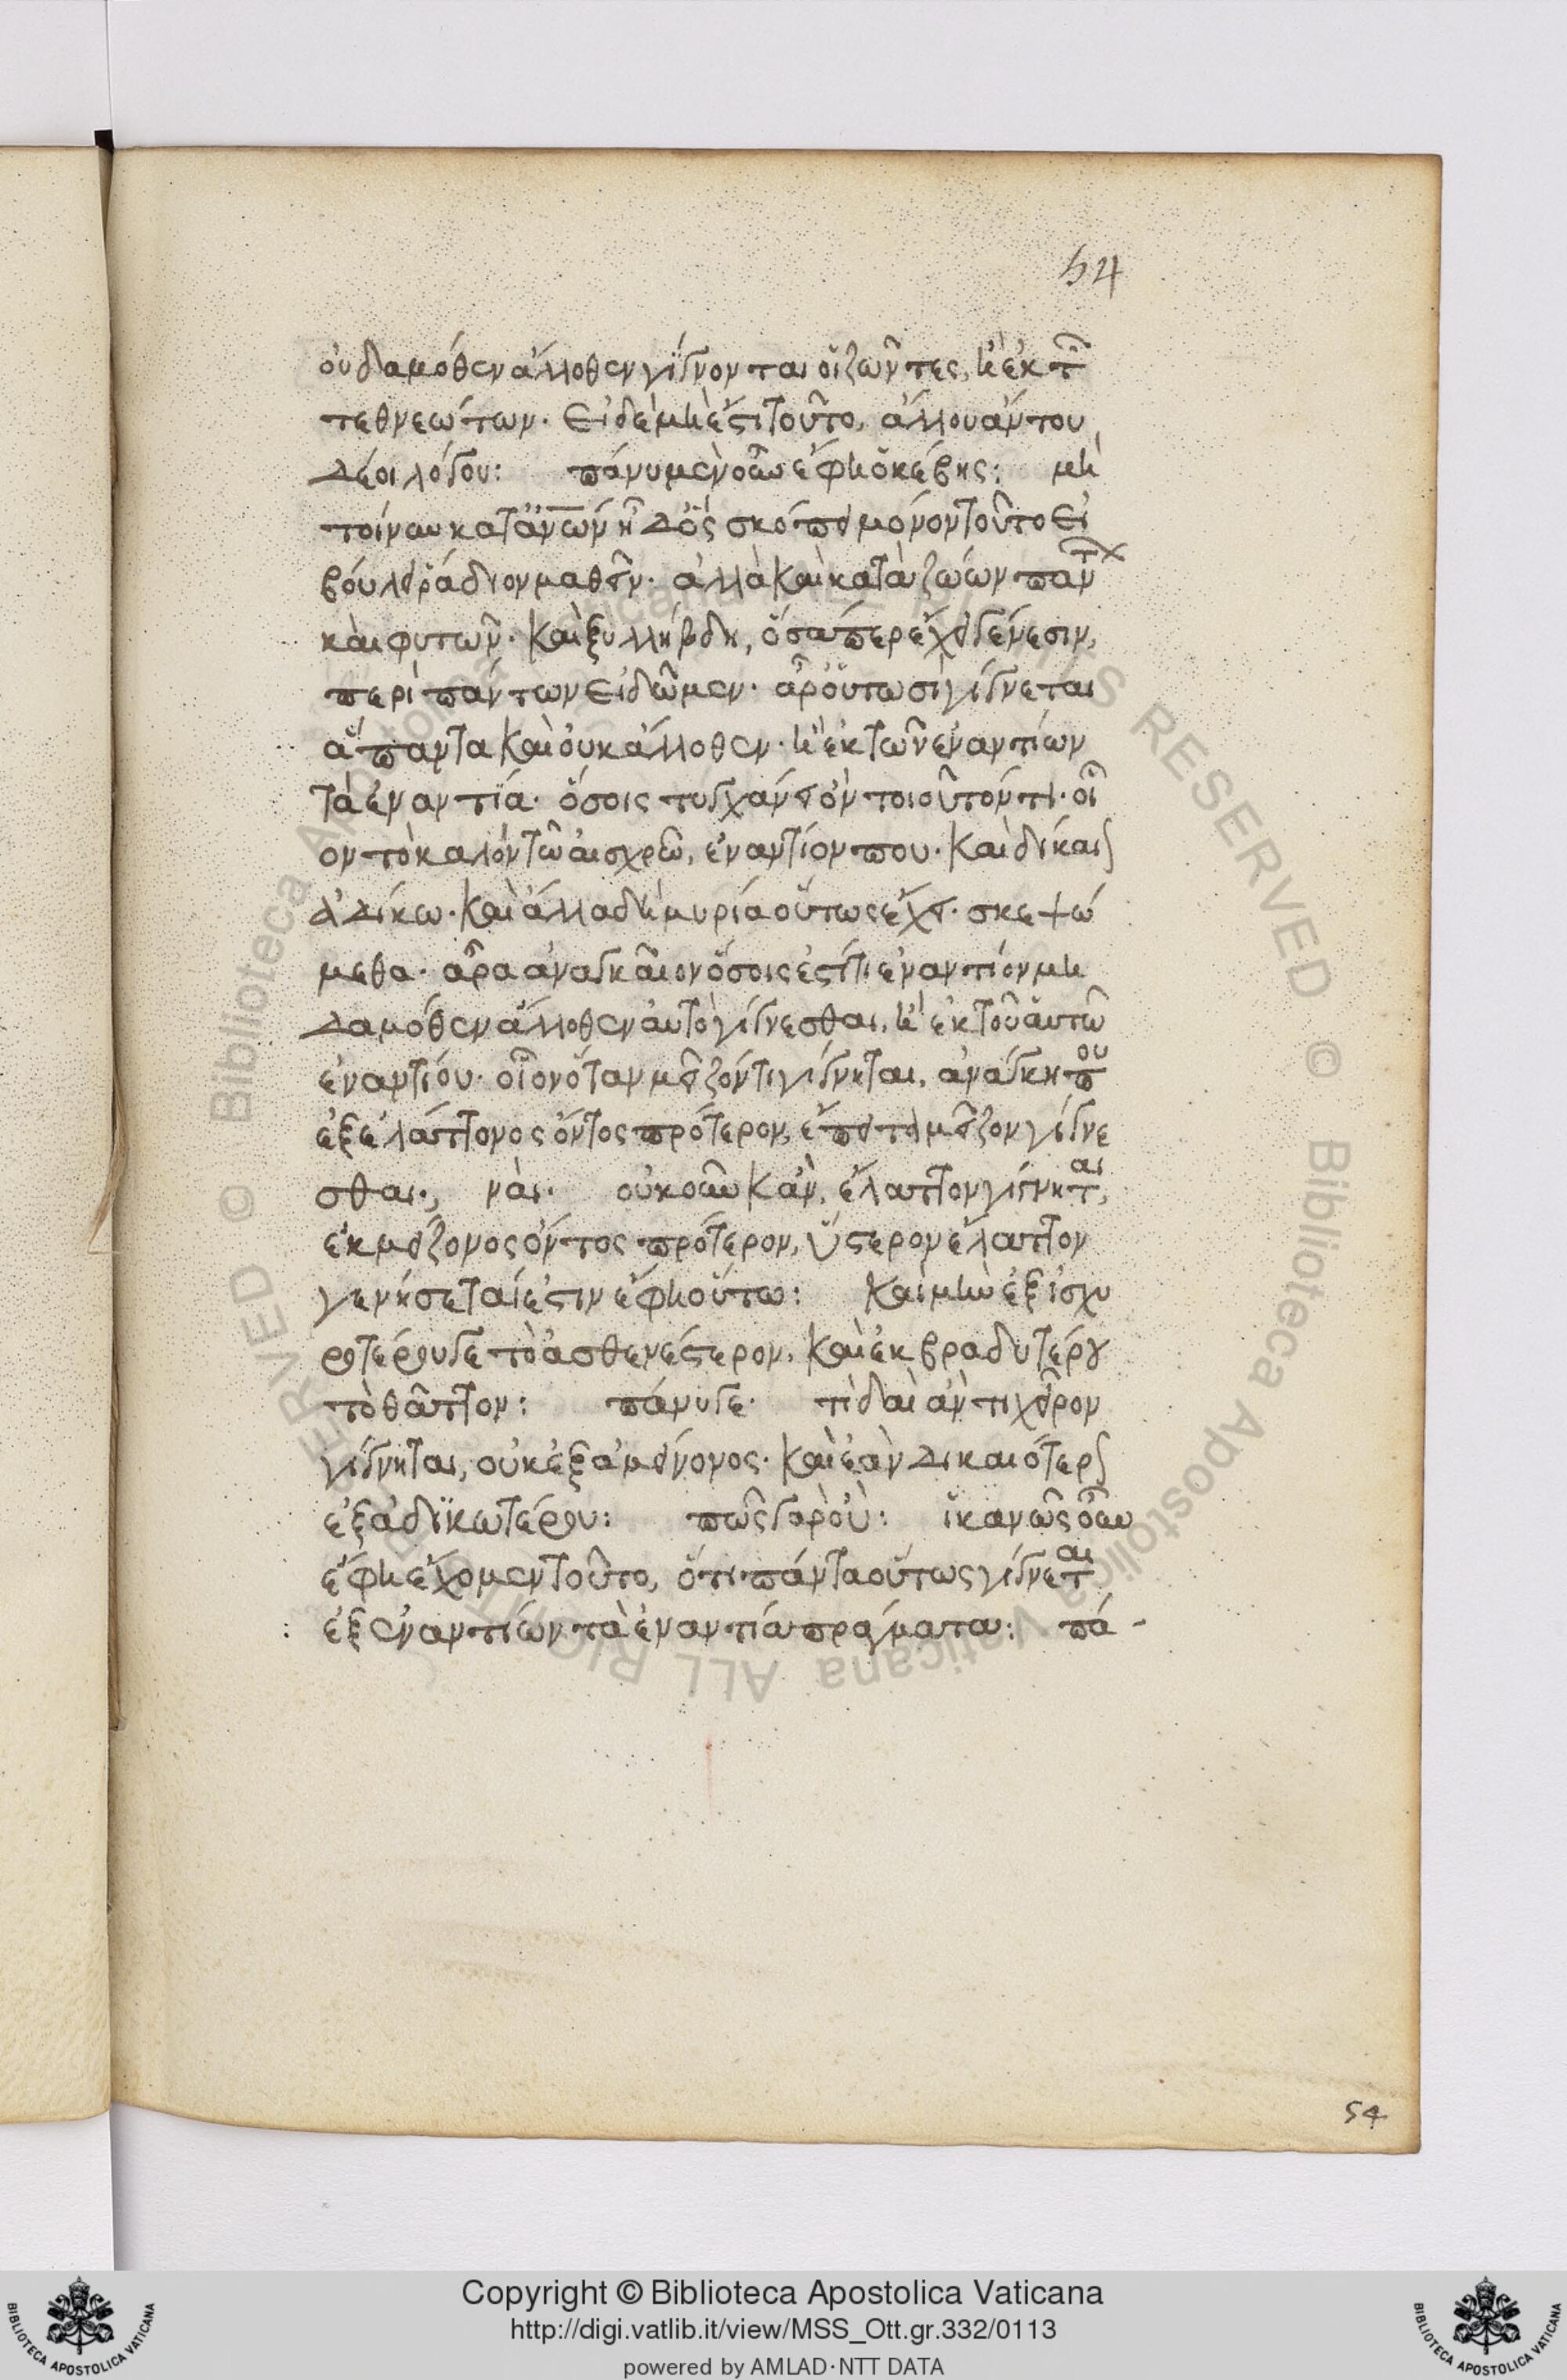 54
οὐδαμόθεν ἄλλοθεν γίγνονται οἱ ζῶντες, ἢ ἐκ τῶν
τεθνεώτων. εἰ δὲ μὴ ἔστι τοῦτο, ἄλλου ἄν του
δέοι λόγου: πάνυ μὲν οὖν ἔφη ὁ κέβης: μὴ
τοίνυν κατ' ἀνῶν ἦ δ' ὃς σκόπει μόνον τοῦτο εἰ
βούλει ῥάδιον μαθεῖν. ἀλλὰ καὶ κατὰ ζώων πάντ
καὶ φυτῶν. καὶ ξυλλήβδη, ὅσαπερ ἔχει γένεσιν,
περὶ πάντων εἰδῶμεν. ἆρ' οὕτωσὶ γίγνεται
ἅπαντα καὶ οὐκ ἄλλοθεν. ἢ ἐκ τῶν ἐναντίων
τὰ ἐναντία. ὅσοις τυγχάνει ὂν τοιοῦτόν τι. οἷ
ον τὸ καλὸν τῶ αἰσχρῶ, ἐναντίον που. καὶ δίκαιον
ἀδίκω. καὶ ἄλλα δὴ μυρία οὕτως ἔχει. σκεψώ
μεθα. ἆρα ἀναγκαῖον ὅσοις ἐστί τι ἐναντίον μη
δαμόθεν ἄλλοθεν αὐτὸ γίγνεσθαι, ἢ ἐκ τοῦ αὐτῶ
ἐναντίου. οἷον ὅταν μεῖζόν τι γίγνηται, ἀνάγκη που
ἐξ ἐλάττονος ὄντος πρότερον, ἔπειτα μεῖζον γίγνε
σθαι., ναί. οὐκοῦν κἂν, ἔλαττον γίγνηται,
ἐκ μείζονος ὄντος πρότερον, ὕστερον ἔλαττον
γενήσεται; ἔστιν ἔφη οὕτω: καὶ μὴν ἐξ ἰσχυ
ροτέρου γε τὸ ἀσθενέστερον, καὶ ἐκ βραδυτέρου
τὸ θᾶττον: πάνυ γε. τὶ δαὶ ἄν τι χεῖρον
γίγνηται, οὐκ ἐξ ἀμείνονος. καὶ ἐὰν δικαιότερον
ἐξ ἀδικωτέρου: πῶς γὰρ οὔ: ἱκανῶς οὖν
ἔφη ἔχομεν τοῦτο, ὅτι πάντα οὕτως γίγνεται
ἐξ ἐναντίων τὰ ἐναντία πράγματα: πά-
54
Copyright © Biblioteca Apostolica Vaticana
http://digi.vatlib.it/view/MSS_Ott.gr.332/0113
powered by AMLAD·NTT DATA
BIBLIOTECA APOSTOLICA VATICANA
BIBLIOTECA APOSTOLICA VATICANA
© Biblioteca Apostolica Vaticana ALL RIGHTS RESERVED